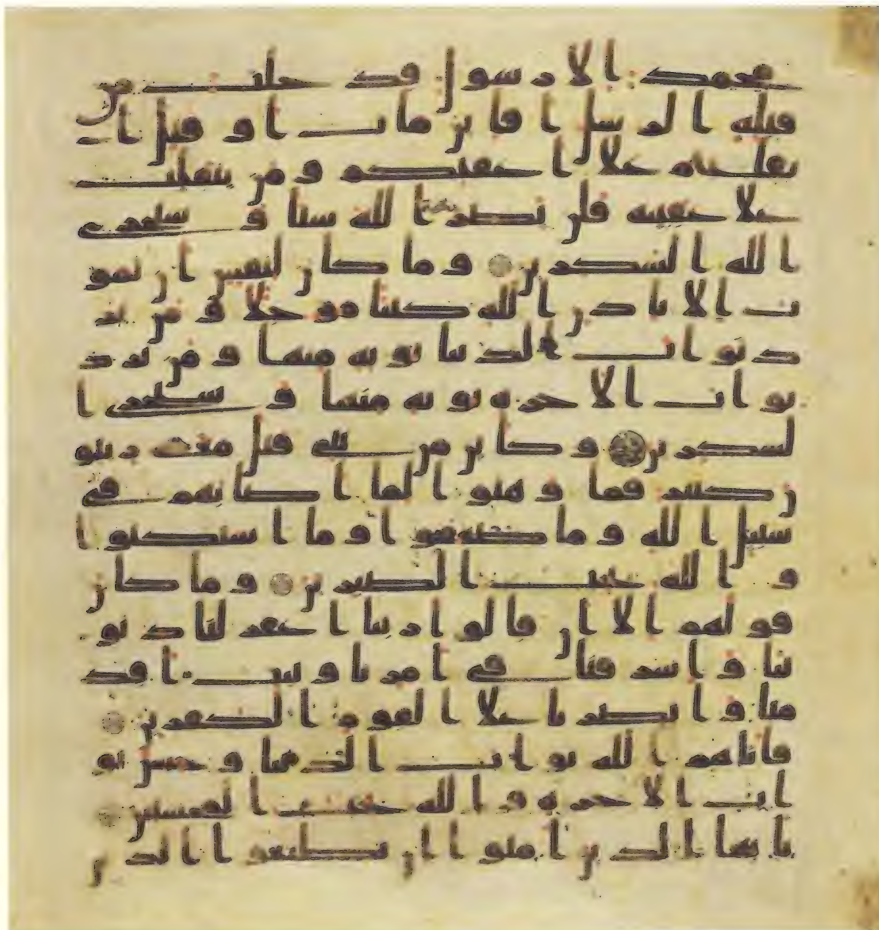 محمد الا رسول قد خلت من
قبله الرسل افاين مات او قتل ا
نقلبتم على اعقبكم ومن ينقلب
على عقبيه فلن يضر الله شيا وسيجزى
الله الشكرين وما كان لنفس ان تمو
ت الا باذن الله كتبا موجلا ومن ير
د ثواب الدنيا نوته منها ومن يرد
ثواب الاخره نوته منها وسنجزى ا
لشكرين وكاين من نبى قتل معه ربيو
ن كثير فما وهنوا لما اصابهم فى
سبيل الله وما ضعفوا وما استكنوا
و الله يحب الصبرين وما كان
قولهم الا ان قالوا ربنا اغفر لنا ذنو
بنا واسرافنا فى امرنا وثبت اقد
امنا وانصرنا على القوم الكفرين
فاتاهم الله ثواب الدنيا وحسن ثو
اب الاخره والله يحب المحسنين
يايها الذين امنوا ان تطيعوا الذين